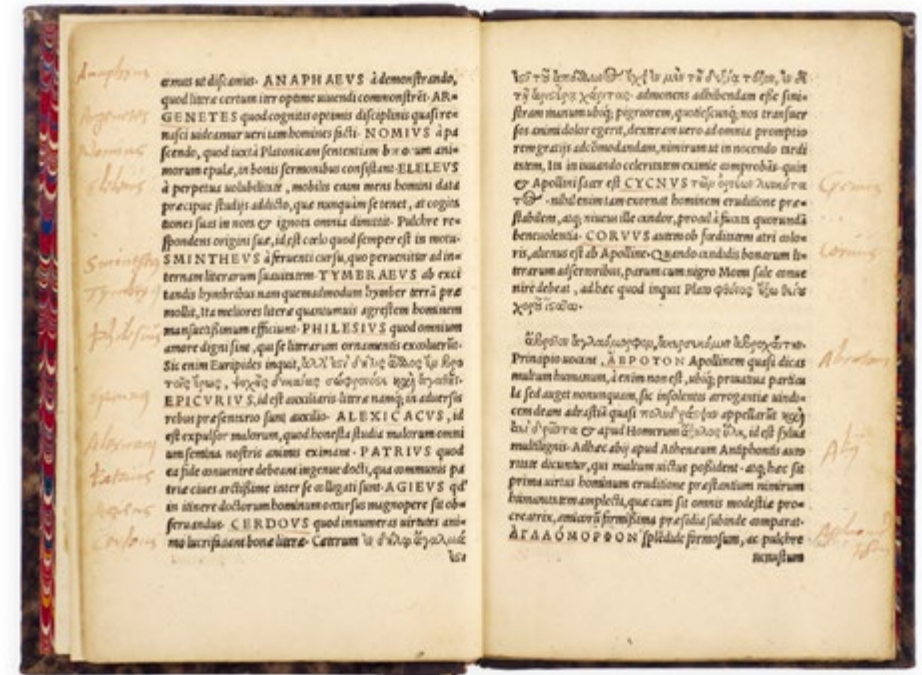 Anaphæus
æmus ut discamus. ANAPHAEVS à demonstrando,
quod literæ certum iter optime uiuendi commonstrēt. AR-
Argenetes
GENETES quod cognitis optimis disciplinis quasi re-
nasci uideamur ueri iam homines facti. NOMIVS à pa
Nomius
scendo, quod iuxtà Platonicam sententiam ani-
morum epulæ, in bonis sermonibus consistant. ELELEVS
Eleleus
à perpetua uolubilitate, mobilis enim mens homini data
præcipue studijs addicto, quæ nunquam se tenet, at cogita
tiones suas in nota & ignota omnia dimittit. Pulchre re-
spondens origini suæ, id est cœlo quod semper est in motu.
Smintheus
SMINTHEVS à feruenti cursu, quo peruenitur ad in-
ternam literarum suauitatem. TYMBRAEVS ab exci
Tymbræus
tandis hymbribus nam quemadmodum hymber terrā præ
mollit, Ita meliores literæ quantumuis agrestem hominem
Philesius
mansuetissimum efficiunt. PHILESIVS quod omnium
amore digni sint, qui se litterarum ornamentis excoluerūt.
Sic enim Euripides inquit,
EPICVRIVS, id est auxiliaris literæ namq; in aduersis
rebus præsentario sunt auxilio. ALEXICACVS, id
Alexicacus
est expulsor malorum, quod honesta studia malorum omni
um semina nostris animis eximant. PATRIVS quod
Patrius
ea fide conuenire debeant ingenue docti, qua communis pa
triæ ciues arctissime inter se colligati sunt. AGIEVS qd'
in itinere doctorum hominum occursus magnopere sit ob-
seruandus. CERDOVS quod innumeras uirtutes ani-
Cerdous
mo lucrifaciant bonæ litteræ. Cæterum
admonens adhibendam esse sini-
stram manum ubiq; pigriorem, quotiescunq; nos transuer
sos animi dolor egerit, dextram uero ad omnia promptio
rem gratijs adcōmodandam, nimirum ut in nocendo tardi
tatem, Ita in iuuando celeritatem eximie comprobās. quin
& Apollini sacer est CYCNVS
Cycnus
nihil enim tam exornat hominem eruditione præ-
stabilem, atq; niueus ille candor, procul à fucatis quorundā
beneuolentia. CORVVS autem ob fœditatem atri colo-
Coruus
ris, alienus est ab Apolline. Quando candidis bonarum li-
terarum adsertoribus, parum cum nigro Momi sale conue
nire debeat, ad hæc quod inquit Plato
Principio uocant, ABROTON Apollinem quasi dicas
multum humanum, à enim non est, ubiq; priuatiua particu
la sed auget nonnunquam, sic insolentis arrogantiæ uindi-
cem deam adrastiā quasi appellarūt
& apud Homerum id est sylua
multilignis. Adhæc abij apud Athenæum Antiphontis auto
Abij
ritate dicuntur, qui multum uictus possident. atq; hæc sit
prima uirtus hominum eruditione præstantium nimirum
humanitatem amplecti, quæ cum sit omnis modestiæ pro-
creatrix, amicorū firmissima præsidia subinde comparat.
ΑΓΛΑΟΜΟΡΦΟΝ splēdide formosum, ac pulchre
uenustum